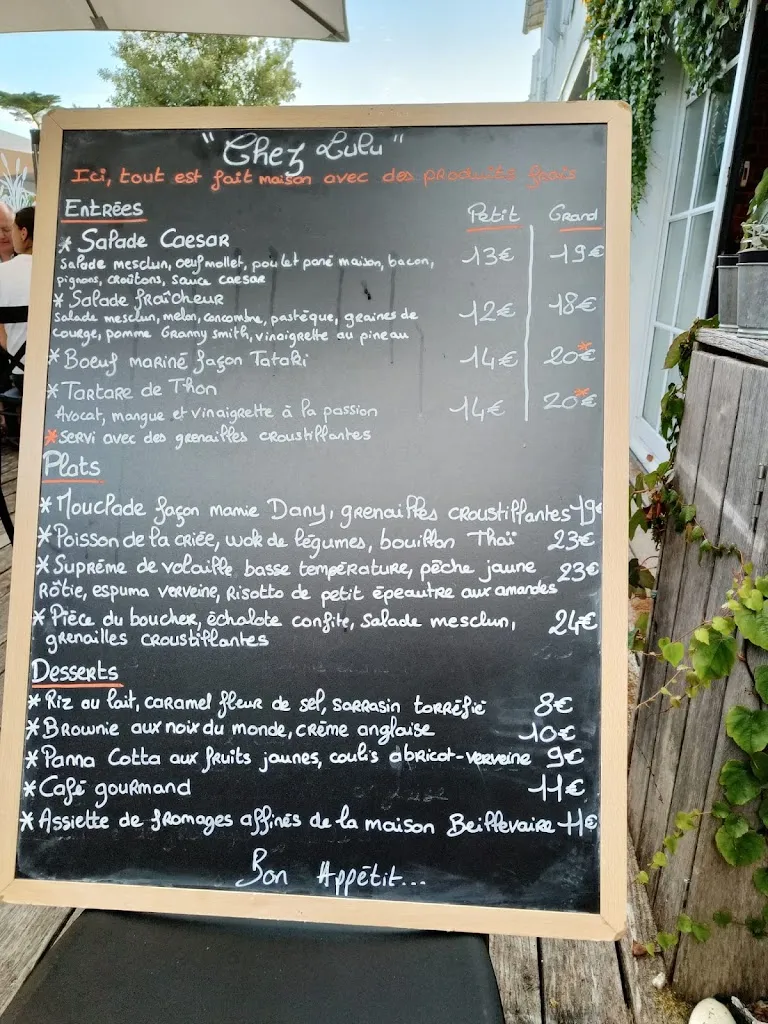 "Chez Lulu"
Ici, tout est fait maison avec des produits frais
Entrées Petit Grand
* Salade Caesar 13€ 19€
Salade mesclun, oeuf mollet, poulet pané maison, bacon,
pignons, croûtons, sauce caesar
* Salade fraîcheur 12€ 18€
Salade mesclun, melon, concombre, pastèque, graines de
courge, pomme Granny Smith, vinaigrette au pineau
* Boeuf mariné façon Tataki 14€ 20€*
* Tartare de Thon 14€ 20€*
Avocat, mangue et vinaigrette à la passion
* servi avec des grenailles croustillantes
Plats
* Mouclade façon mamie Dany, grenailles croustillantes 19€
* Poisson de la criée, wok de légumes, bouillon Thaï 23€
* Suprême de volaille basse température, pêche jaune 23€
Rôtie, espuma verveine, Risotto de petit épeautre aux amandes
* Pièce du boucher, échalote confite, Salade mesclun, 24€
grenailles croustillantes
Desserts
* Riz au lait, caramel fleur de sel, sarrasin torréfié 8€
* Brownie aux noix du monde, crème anglaise 10€
* Panna Cotta aux fruits jaunes, coulis abricot-verveine 9€
* Café gourmand 11€
* Assiette de fromages affinés de la maison Beillevaire 11€
Bon Appétit...